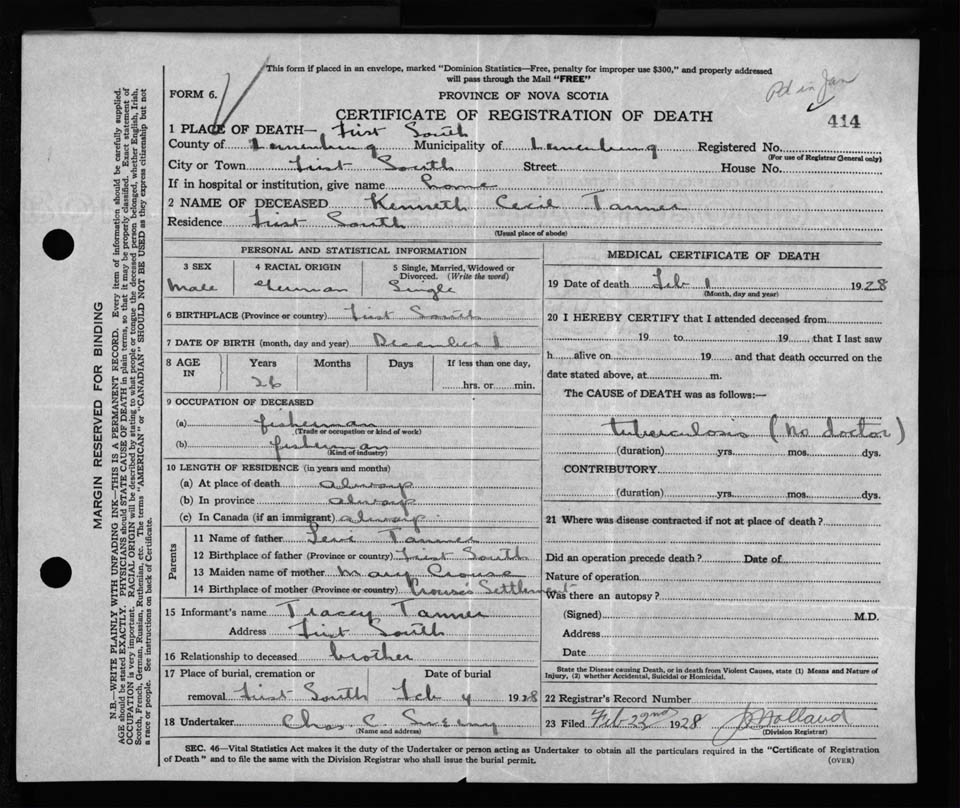 This form if placed in an envelope, marked "Dominion Statistics—Free, penalty for improper use $300," and properly addressed
will pass through the Mail "FREE"
FORM 6.
PROVINCE OF NOVA SCOTIA
Pd in Jan
CERTIFICATE OF REGISTRATION OF DEATH
414
1 PLACE OF DEATH— First South
County of Lunenburg Municipality of Lunenburg Registered No.
(For use of Registrar General only)
City or Town First South Street House No.
If in hospital or institution, give name home
2 NAME OF DECEASED Kenneth Cecil Tanner
Residence First South
(Usual place of abode)
PERSONAL AND STATISTICAL INFORMATION
3 SEX 4 RACIAL ORIGIN 5 Single, Married, Widowed or
Divorced. (Write the word)
Male German Single
6 BIRTHPLACE (Province or country) First South
7 DATE OF BIRTH (month, day and year) December 1
8 AGE IN Years Months Days If less than one day,
26 hrs. or min.
9 OCCUPATION OF DECEASED
(a) fisherman
(Trade or occupation or kind of work)
(b) fisherman
(Kind of industry)
10 LENGTH OF RESIDENCE (in years and months)
(a) At place of death always
(b) In province always
(c) In Canada (if an immigrant) always
Parents
11 Name of father Levi Tanner
12 Birthplace of father (Province or country) First South
13 Maiden name of mother Mary Crouse
14 Birthplace of mother (Province or country) Crouse's Settlement
15 Informant's name Tracey Tanner
Address First South
16 Relationship to deceased brother
17 Place of burial, cremation or Date of burial
removal First South Feb 4 1928
18 Undertaker Chas. C. Sweeny
(Name and address)
MEDICAL CERTIFICATE OF DEATH
19 Date of death Feb 1 1928
(Month, day and year)
20 I HEREBY CERTIFY that I attended deceased from
19 to 19 that I last saw
h alive on 19 and that death occurred on the
date stated above, at m.
The CAUSE of DEATH was as follows:—
tuberculosis (no doctor)
(duration) yrs. mos. dys.
CONTRIBUTORY
(duration) yrs. mos. dys.
21 Where was disease contracted if not at place of death?
Did an operation precede death? Date of
Nature of operation
Was there an autopsy?
(Signed) M.D.
Address
Date
State the Disease causing Death, or in death from Violent Causes, state (1) Means and Nature of
Injury, (2) whether Accidental, Suicidal or Homicidal.
22 Registrar's Record Number
23 Filed Feb 22nd 1928 Holland
(Division Registrar)
SEC. 46—Vital Statistics Act makes it the duty of the Undertaker or person acting as Undertaker to obtain all the particulars required in the "Certificate of Registration
of Death" and to file the same with the Division Registrar who shall issue the burial permit. (OVER)
MARGIN RESERVED FOR BINDING
N.B.—WRITE PLAINLY WITH UNFADING INK—THIS IS A PERMANENT RECORD. Every item of information should be carefully supplied.
AGE should be stated EXACTLY. PHYSICIANS should STATE CAUSE OF DEATH in plain terms, so that it may be properly classified. Exact statement of
OCCUPATION is very important. RACIAL ORIGIN will be described by stating to what people or tongue the deceased person belonged, whether English, Irish,
Scotch, French, German, Russian, Ruthenian, etc. The terms "AMERICAN" or "CANADIAN" SHOULD NOT BE USED as they express citizenship but not
a race or people. See instructions on back of Certificate.